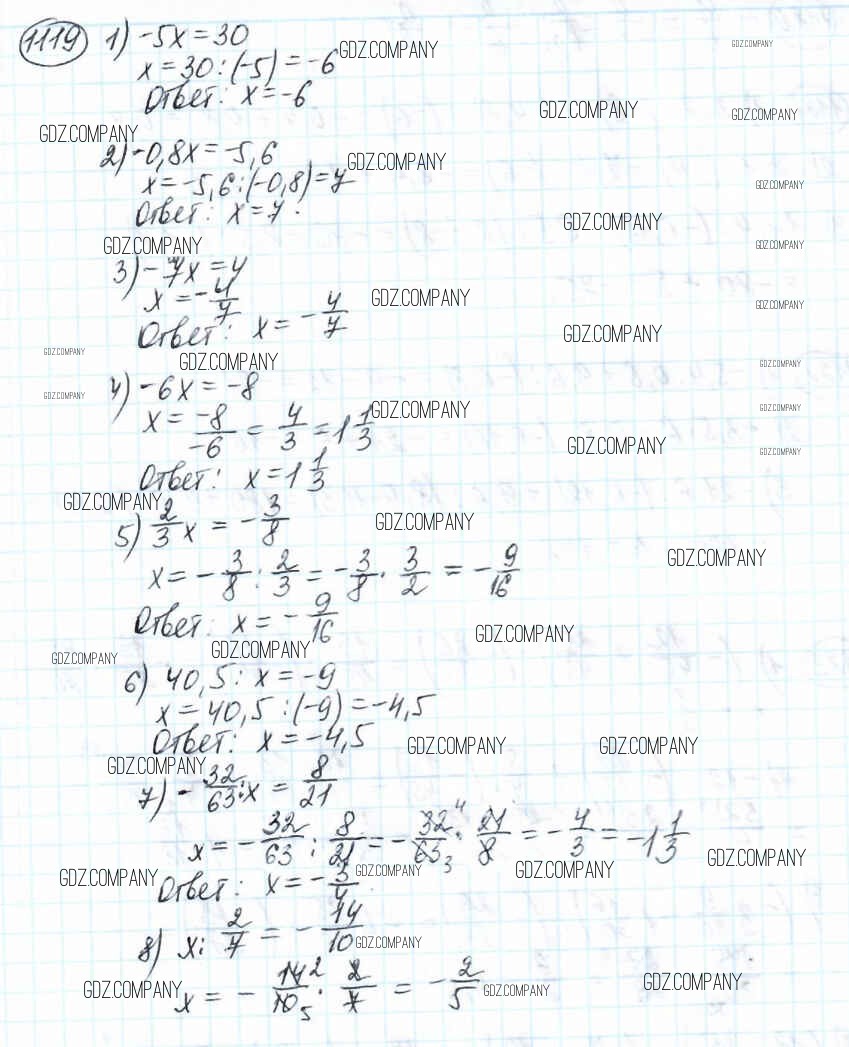 1119 1) -5x = 30 GDZ.COMPANY GDZ.COMPANY
x = 30 : (-5) = -6
Ответ: x = -6 GDZ.COMPANY GDZ.COMPANY
GDZ.COMPANY
2) -0,8x = -5,6 GDZ.COMPANY
x = -5,6 : (-0,8) = 7 GDZ.COMPANY
Ответ: x = 7. GDZ.COMPANY
GDZ.COMPANY GDZ.COMPANY
3) -7x = 4
x = -4/7 GDZ.COMPANY GDZ.COMPANY
Ответ: x = -4/7 GDZ.COMPANY
GDZ.COMPANY GDZ.COMPANY GDZ.COMPANY
4) -6x = -8 GDZ.COMPANY
x = -8/-6 = 4/3 = 1 1/3 GDZ.COMPANY GDZ.COMPANY
GDZ.COMPANY GDZ.COMPANY
Ответ: x = 1 1/3
GDZ.COMPANY
5) 2/3 x = -3/8 GDZ.COMPANY
GDZ.COMPANY
x = -3/8 : 2/3 = -3/8 · 3/2 = -9/16
Ответ: x = -9/16 GDZ.COMPANY
GDZ.COMPANY GDZ.COMPANY
6) 40,5 : x = -9
x = 40,5 : (-9) = -4,5
Ответ: x = -4,5 GDZ.COMPANY GDZ.COMPANY
GDZ.COMPANY
7) -32/63 : x = 8/21
x = -32/63 : 8/21 = -32/63 4 3 · 21/8 = -4/3 = -1 1/3 GDZ.COMPANY
GDZ.COMPANY GDZ.COMPANY GDZ.COMPANY
Ответ: x = -3/4
8) x : 2/7 = -14/10 GDZ.COMPANY
x = -14/10 2 5 · 2/7 = -2/5 GDZ.COMPANY GDZ.COMPANY GDZ.COMPANY